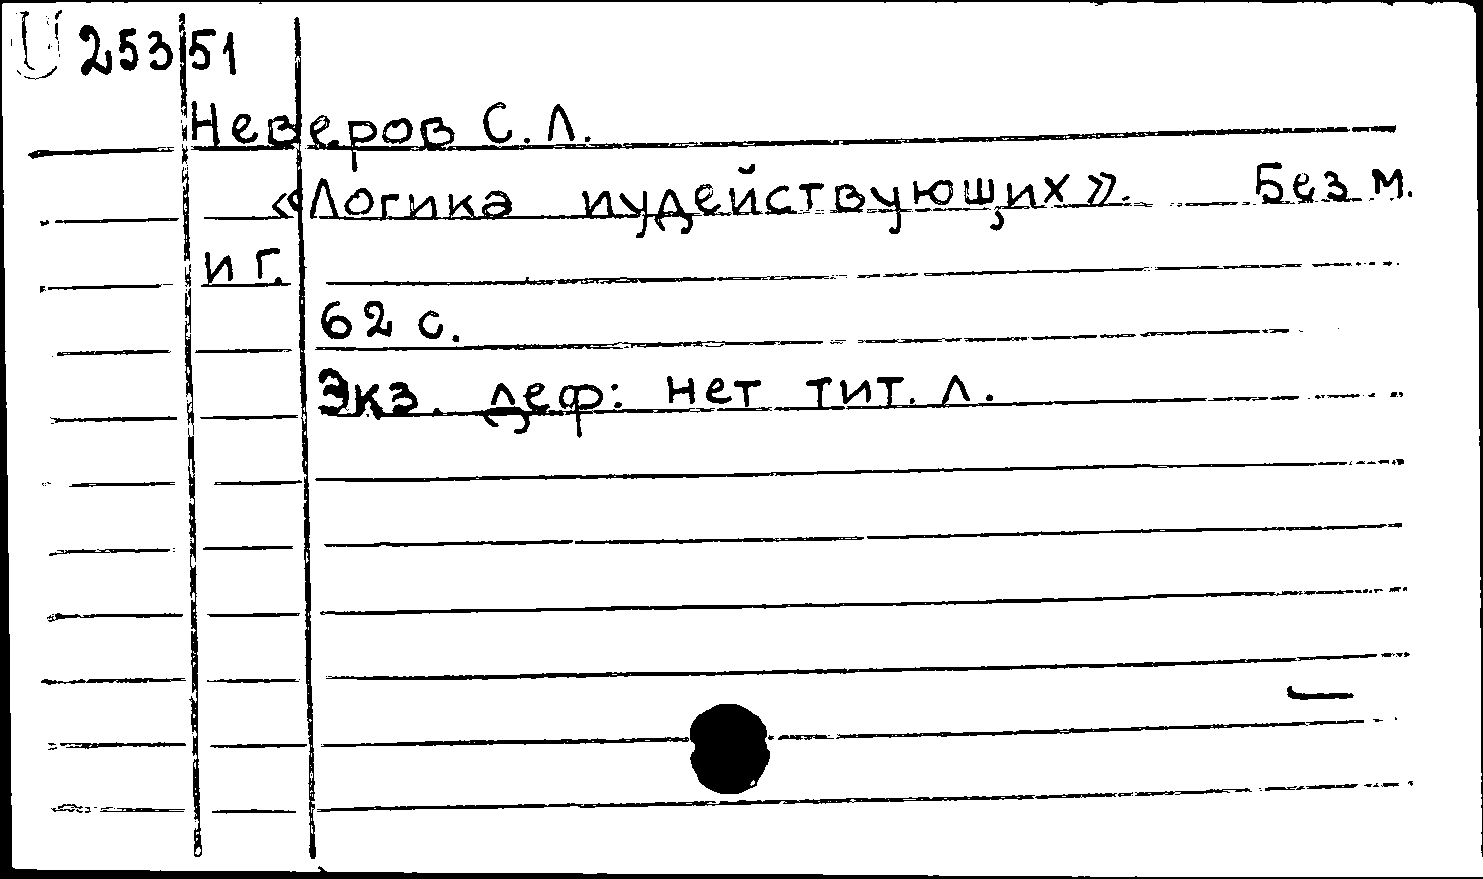 U 253/51
Неверов С. Л.
«Логика иудействующих». Без м.
и г.
62 с.
Экз. деф: нет тит. л.